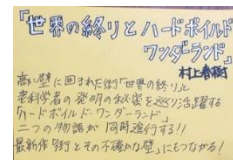 『世界の終りとハードボイルド
ワンダーランド』
村上春樹
高い壁に囲まれた街「世界の終り」と
老科学者の発明の秘密を巡り活躍する
「ハードボイルド・ワンダーランド」
二つの物語が同時進行する!!
最新作「街とその不確かな壁」にもつながる!